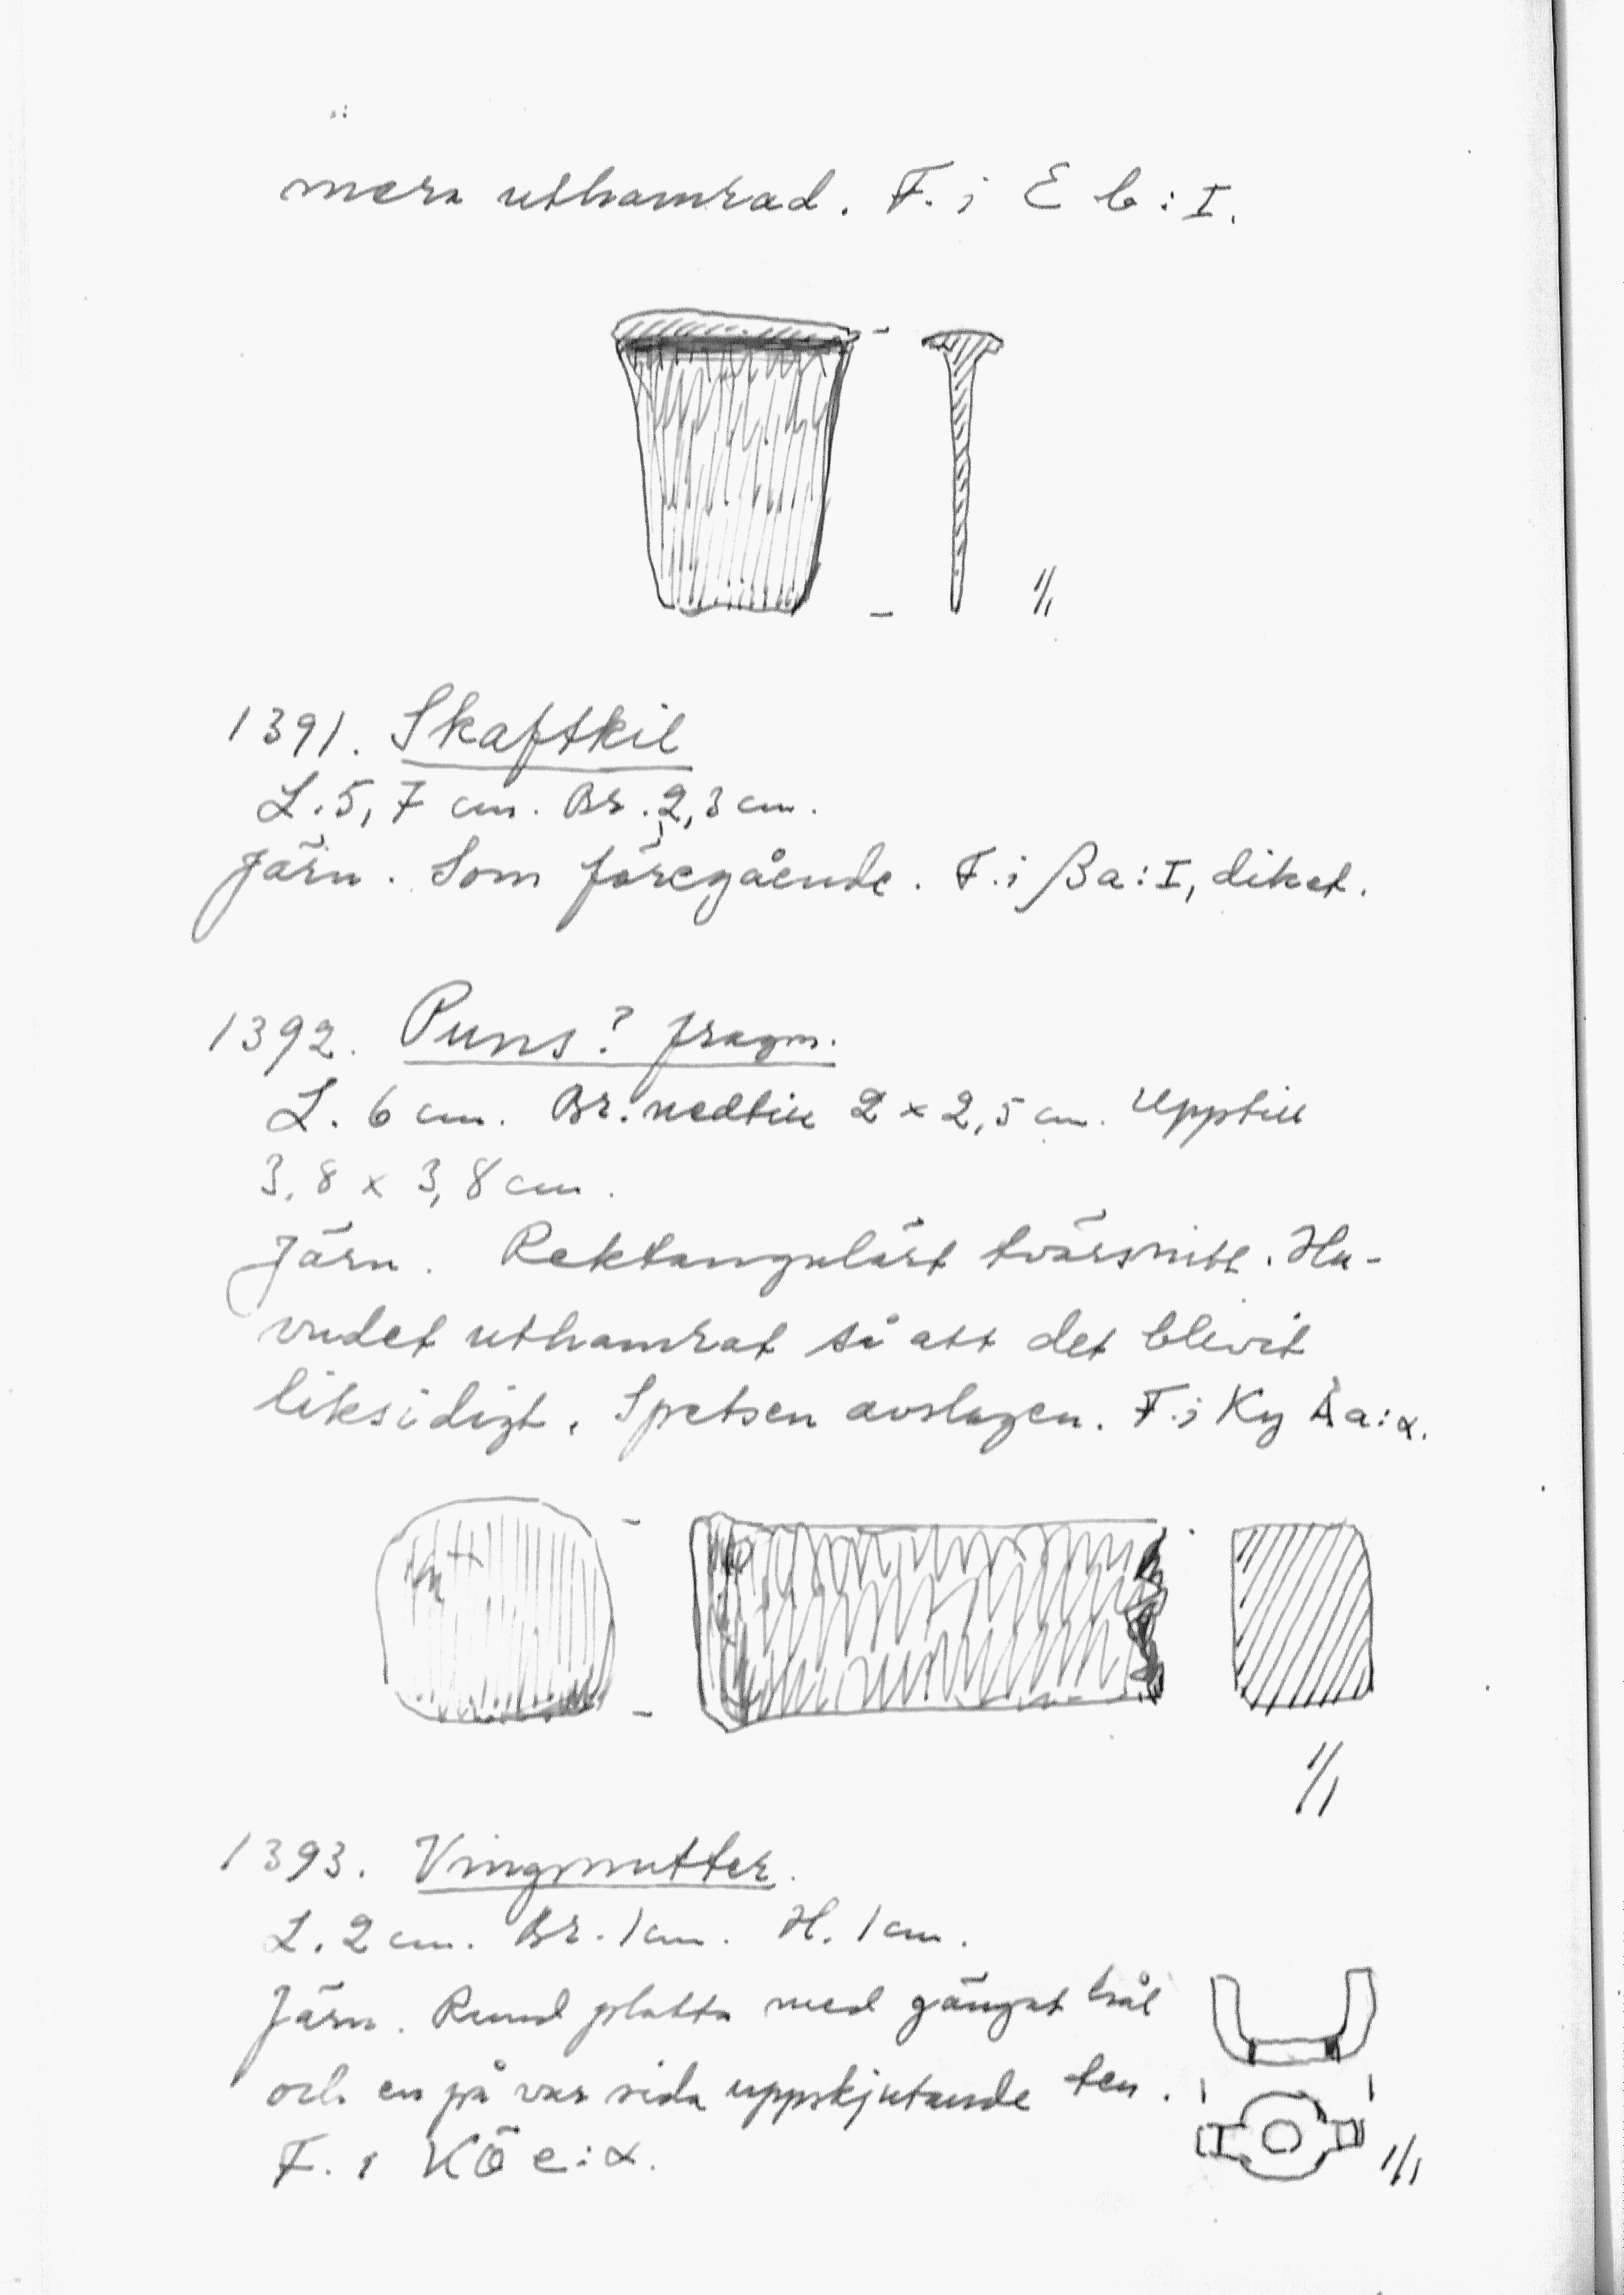 mera uthamrad. F. i E b : I.
1/1
1391. Skaftkil
L. 5,7 cm. Br. 2,3 cm.
Järn. Som föregående. F. i βa : I, diket.
1392. Puns? fragm.
L. 6 cm. Br. nedtill 2 x 2,5 cm. Upptill
3,8 x 3,8 cm.
Järn. Rektangulärt tvärsnitt. Hu-
vudet uthamrat så att det blivit
liksidigt. Spetsen avslagen. F. i Ky Åa : α.
1/1
1393. Vingmutter.
L. 2 cm. Br. 1 cm. H. 1 cm.
Järn. Rund platta med gängat hål
och en på var sida uppskjutande ten.
F. i KÖ e : α.
1/1